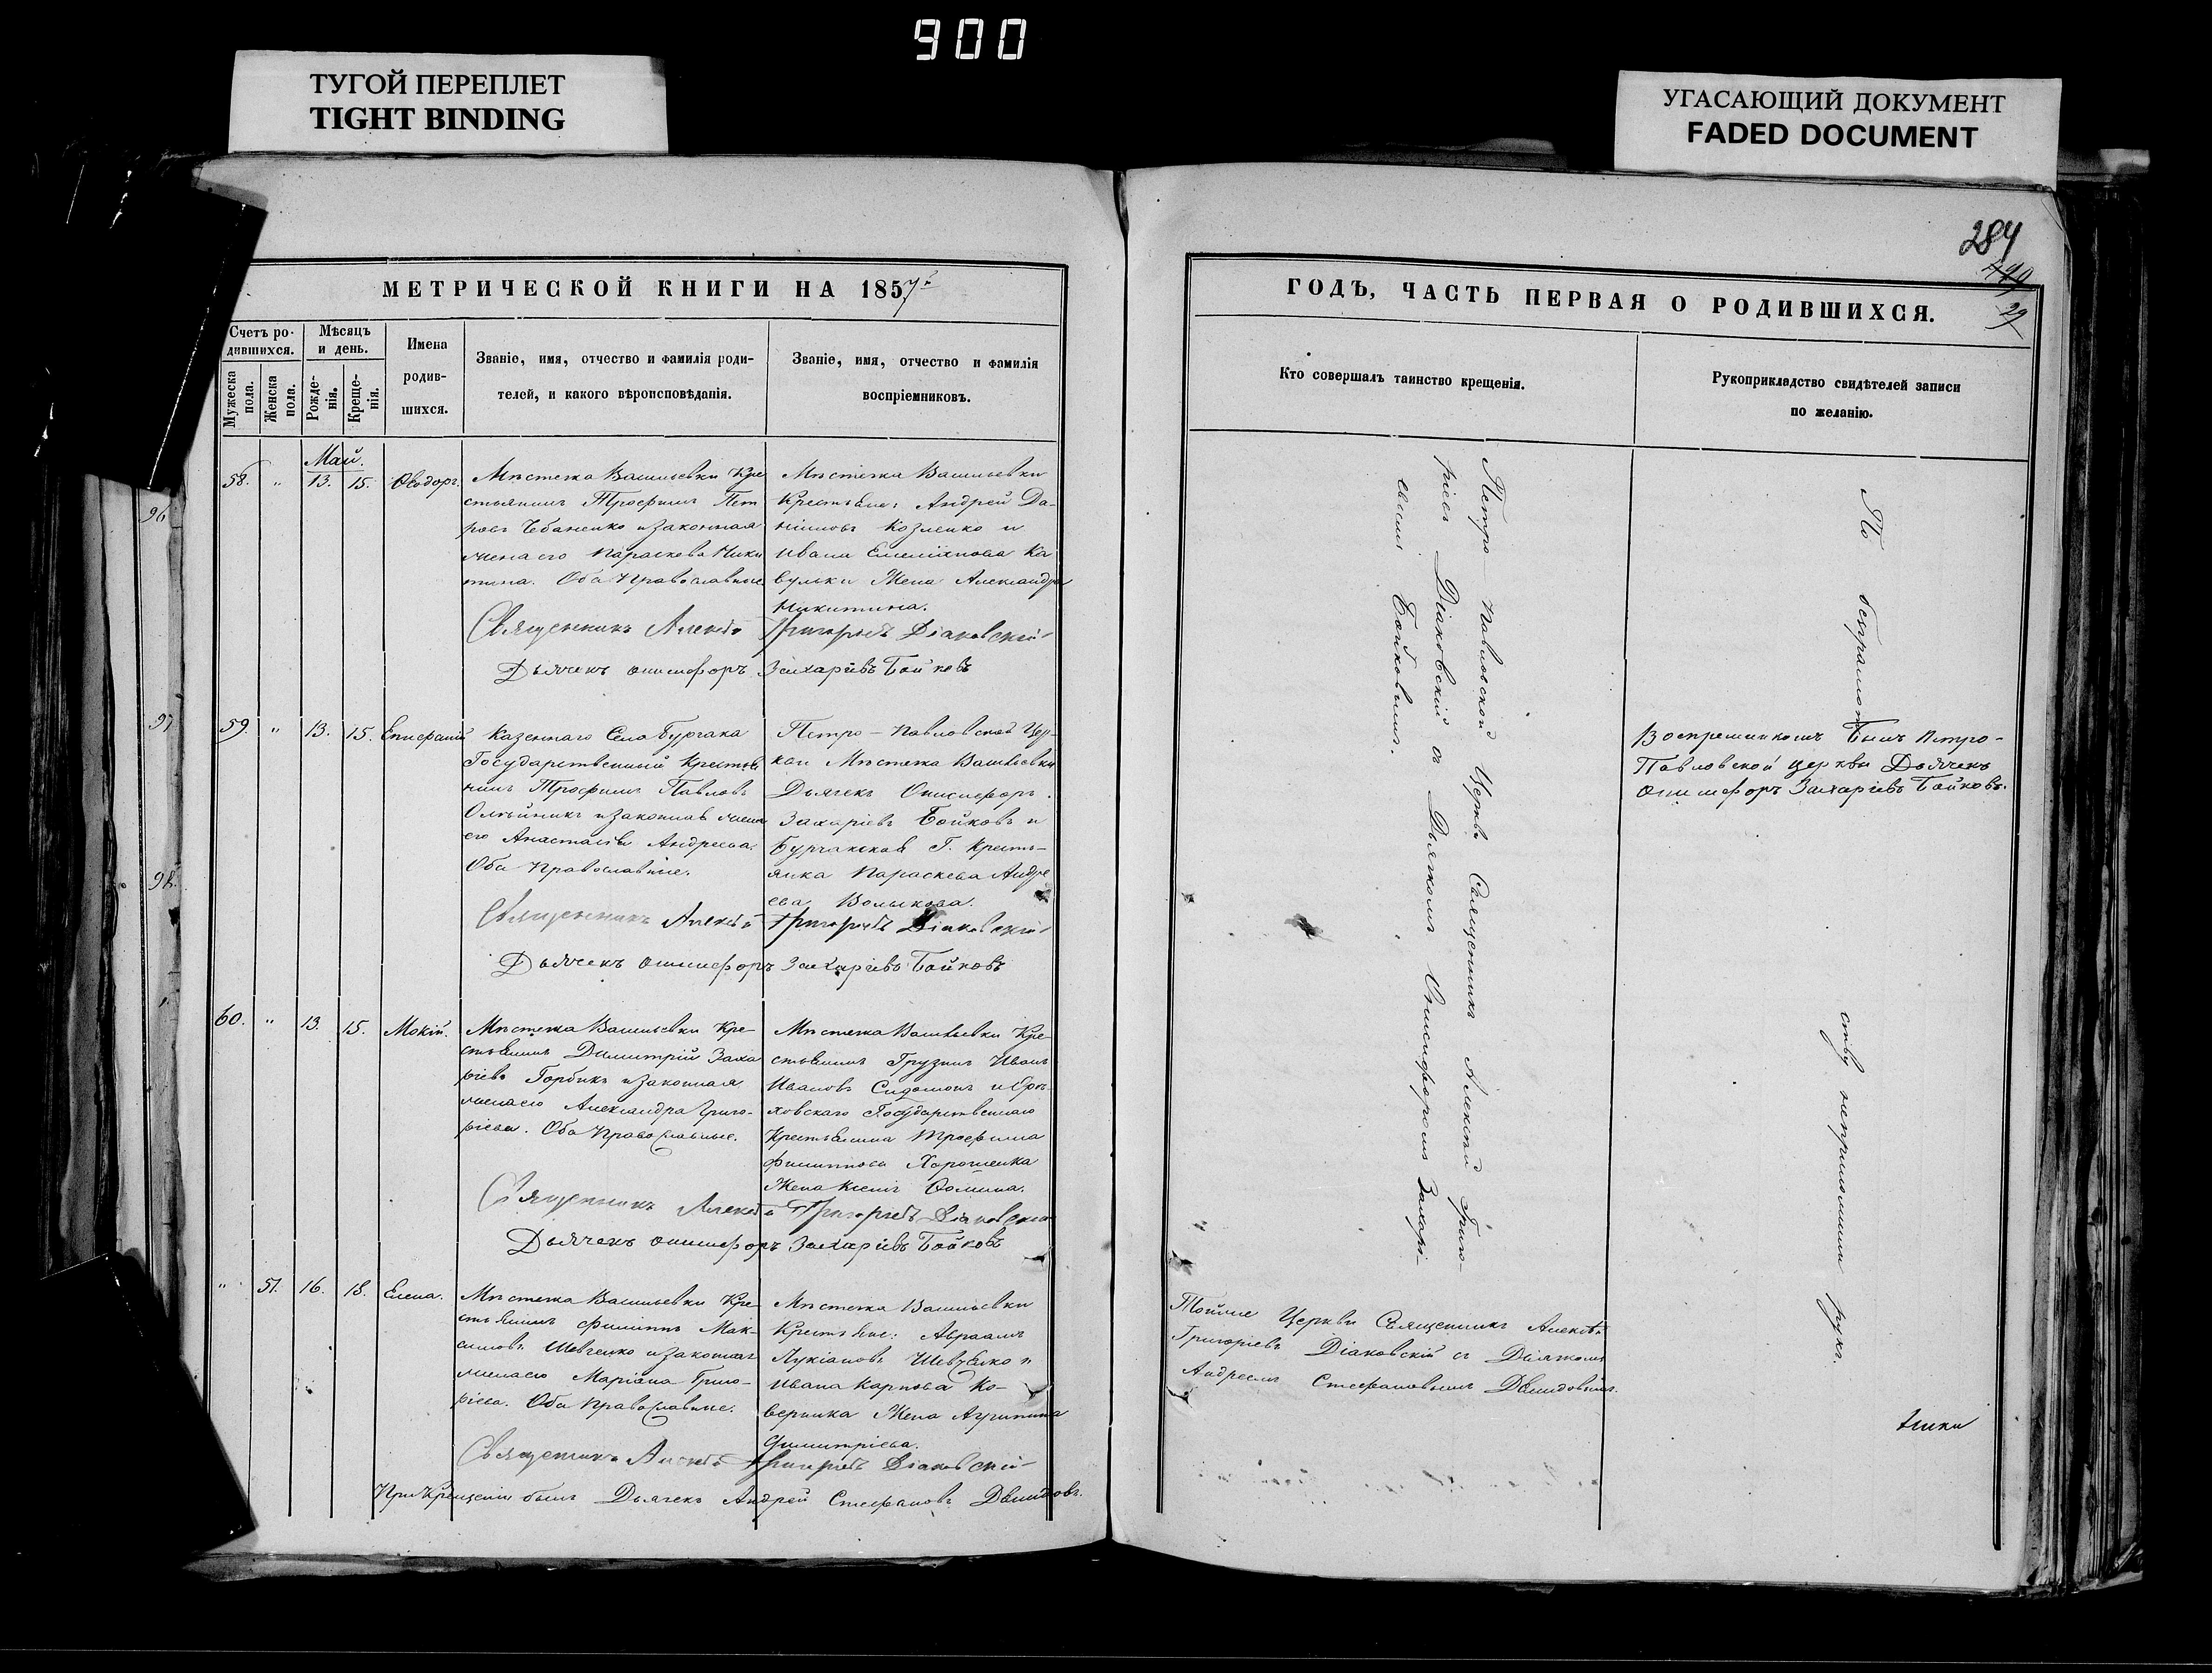 900
ТУГОЙ ПЕРЕПЛЕТ
TIGHT BINDING
УГАСАЮЩИЙ ДОКУМЕНТ
FADED DOCUMENT
96
97
98.
МЕТРИЧЕСКОЙ КНИГИ НА 1857й
Счетъ ро-
дившихся.
Мужеска пола.
Женска пола.
Мѣсяцъ
и день.
Рожде-
нія.
Креще-
нія.
Имена
родив-
шихся.
Званіе, имя, отчество и фамилія роди-
телей, и какого вѣроисповѣданія.
Званіе, имя, отчество и фамилія
воспріемниковъ.
Май.
58. " 13. 15. Ѳеодоръ.
Мѣстечка Васильевки Кре
стьянинъ Трофимъ Пет
ровъ Чебаненко и законная
жена его Параскева Ники
тина. Оба Православные
Мѣстечка Васильевки
Крестьяне: Андрей Да-
ниловъ Козленко и
Ивана Емеліянова Ка
вульки Жена Александра
Никитина.
Священникъ Алексѣй Григорьевъ Діаковскій
Дьячекъ Онисифоръ Захаріевъ Бойковъ
59. " 13. 15. Епифаній
Казеннаго Села Бурчака
Государственный Крестья
нинъ Трофимъ Павловъ
Олѣйникъ и законная жена
его Анастасія Андреева.
Оба Православные.
Петро-Павловской Цер-
кви Мѣстечка Васильевки
Дьячекъ Онисифоръ
Захаріевъ Бойковъ и
Бурчакская Г. Кресть-
янка Параскева Андре
ева Волыкова.
Священникъ Алексѣй Григорьевъ Діаковскій
Дьячекъ Онисифоръ Захаріевъ Бойковъ
60. " 13. 15. Мокій.
Мѣстечка Васильевки Кре-
стьянинъ Димитрій Заха
ріевъ Горбикъ и законная
жена его Александра Григо-
рьева. Оба Православные.
Мѣстечка Васильевки Кре
стьянинъ Грузинъ Иванъ
Ивановъ Сидамонъ и Орѣ-
ховскаго Государственнаго
Крестьянина Трофима
Филиппова Харошенка
Жена Ксенія Ѳомина.
Священникъ Алексѣй Григорьевъ Діаковскій
Дьячекъ Онисифоръ Захаріевъ Бойковъ
" 51. 16. 18. Елена.
Мѣстечка Васильевки Кре-
стьянинъ Филиппъ Мак-
симовъ Шевченко и законная
жена его Маріана Григо-
рьева. Оба Православные.
Мѣстечка Васильевки
Крестьяне: Авраамъ
Лукіановъ Шевченко и
Ивана Карпова Ко-
верника Жена Агрипина
Димитріева.
Священникъ Алексѣй Григорьевъ Діаковскій
При Крещеніи былъ Дьячекъ Андрей Стефановъ Демидовъ.
284
29
ГОДЪ, ЧАСТЬ ПЕРВАЯ О РОДИВШИХСЯ.
Кто совершалъ таинство крещенія.
Рукоприкладство свидѣтелей записи
по желанію.
Петро-Павловской Церкви Священникъ Алексѣй Григо-
рьевъ Діаковскій съ Дьячкомъ Онисифоромъ Захарі-
евымъ Бойковымъ.
По безграмот
ству неприложили рукъ.
Воспреемникомъ былъ Петро-
Павловской церкви Дьячекъ
Онисифоръ Захаріевъ Бойковъ.
Тойже Церкви Священникъ Алексѣй
Григорьевъ Діаковскій съ Дьячкомъ
Андреемъ Стефановымъ Демидовымъ.